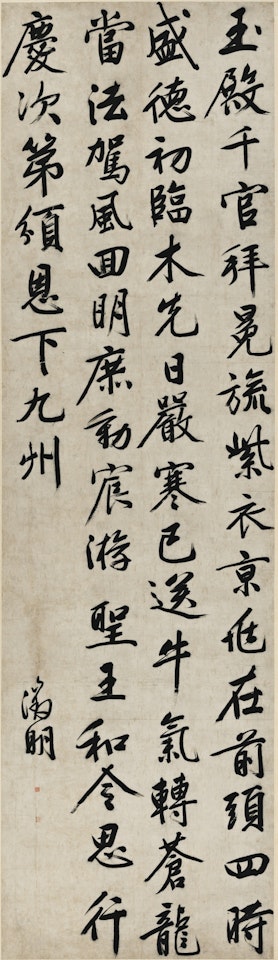 玉殿千官拜冕旒紫衣京兆在前頭四時
盛德初臨木先日嚴寒已送牛氣轉蒼龍
當法駕風回明庶動宸游聖王和令思行
慶次第頒恩下九州
徵明